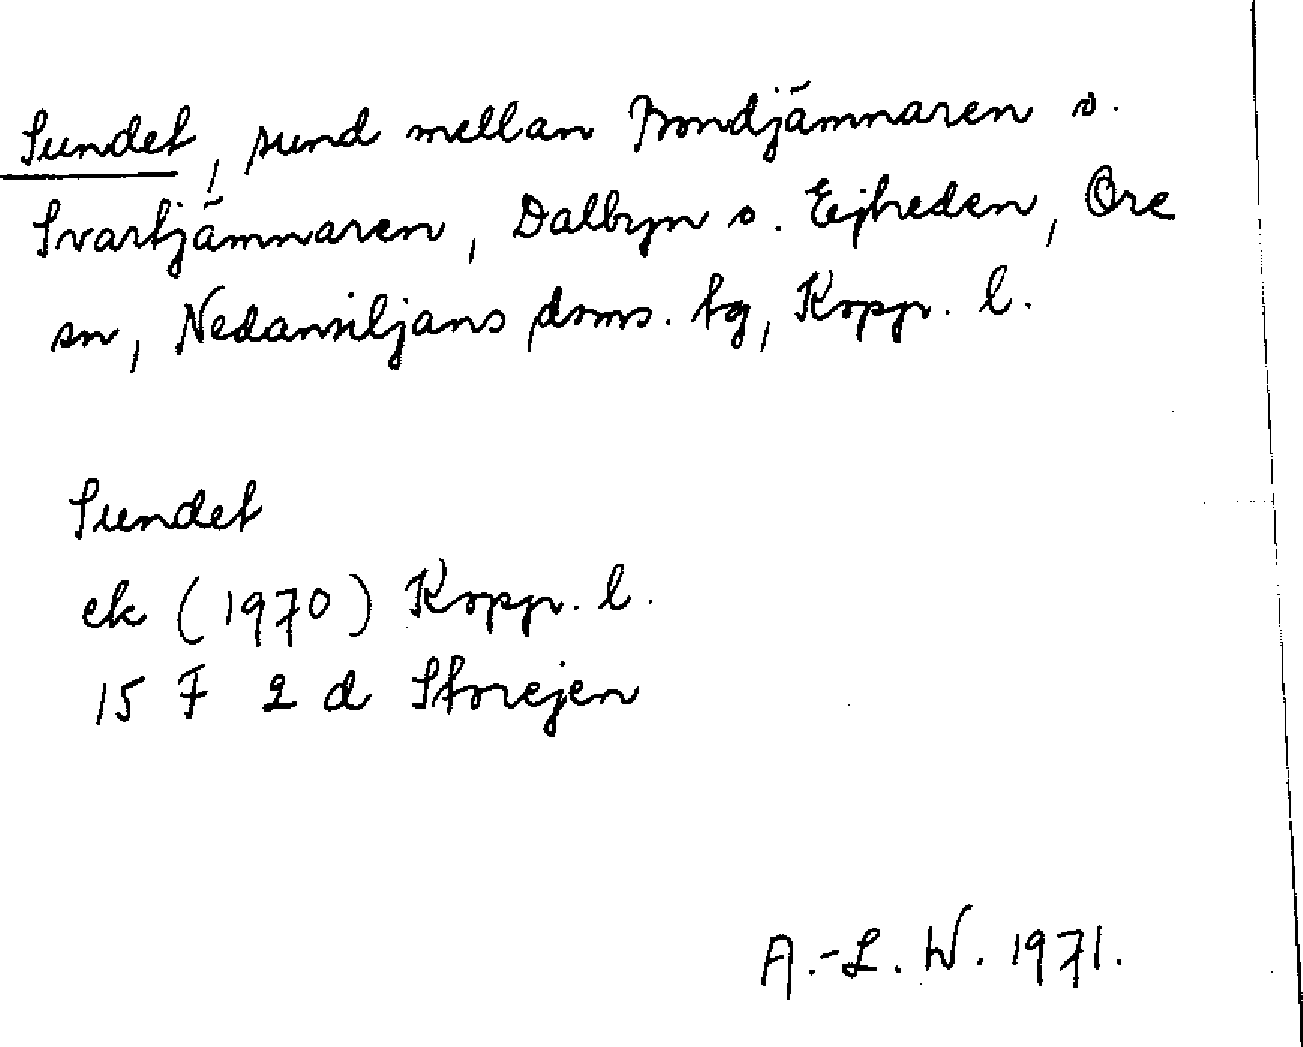 Sundet, sund mellan Bondjämnaren o.
Svartjämnaren, Dalbyn o. Ejheden, Ore
sn, Nedansiljans doms. tg, Kopp. l.
Sundet
ek (1970) Kopp. l.
15 F 2 d Storejen
A.-L. W. 1971.